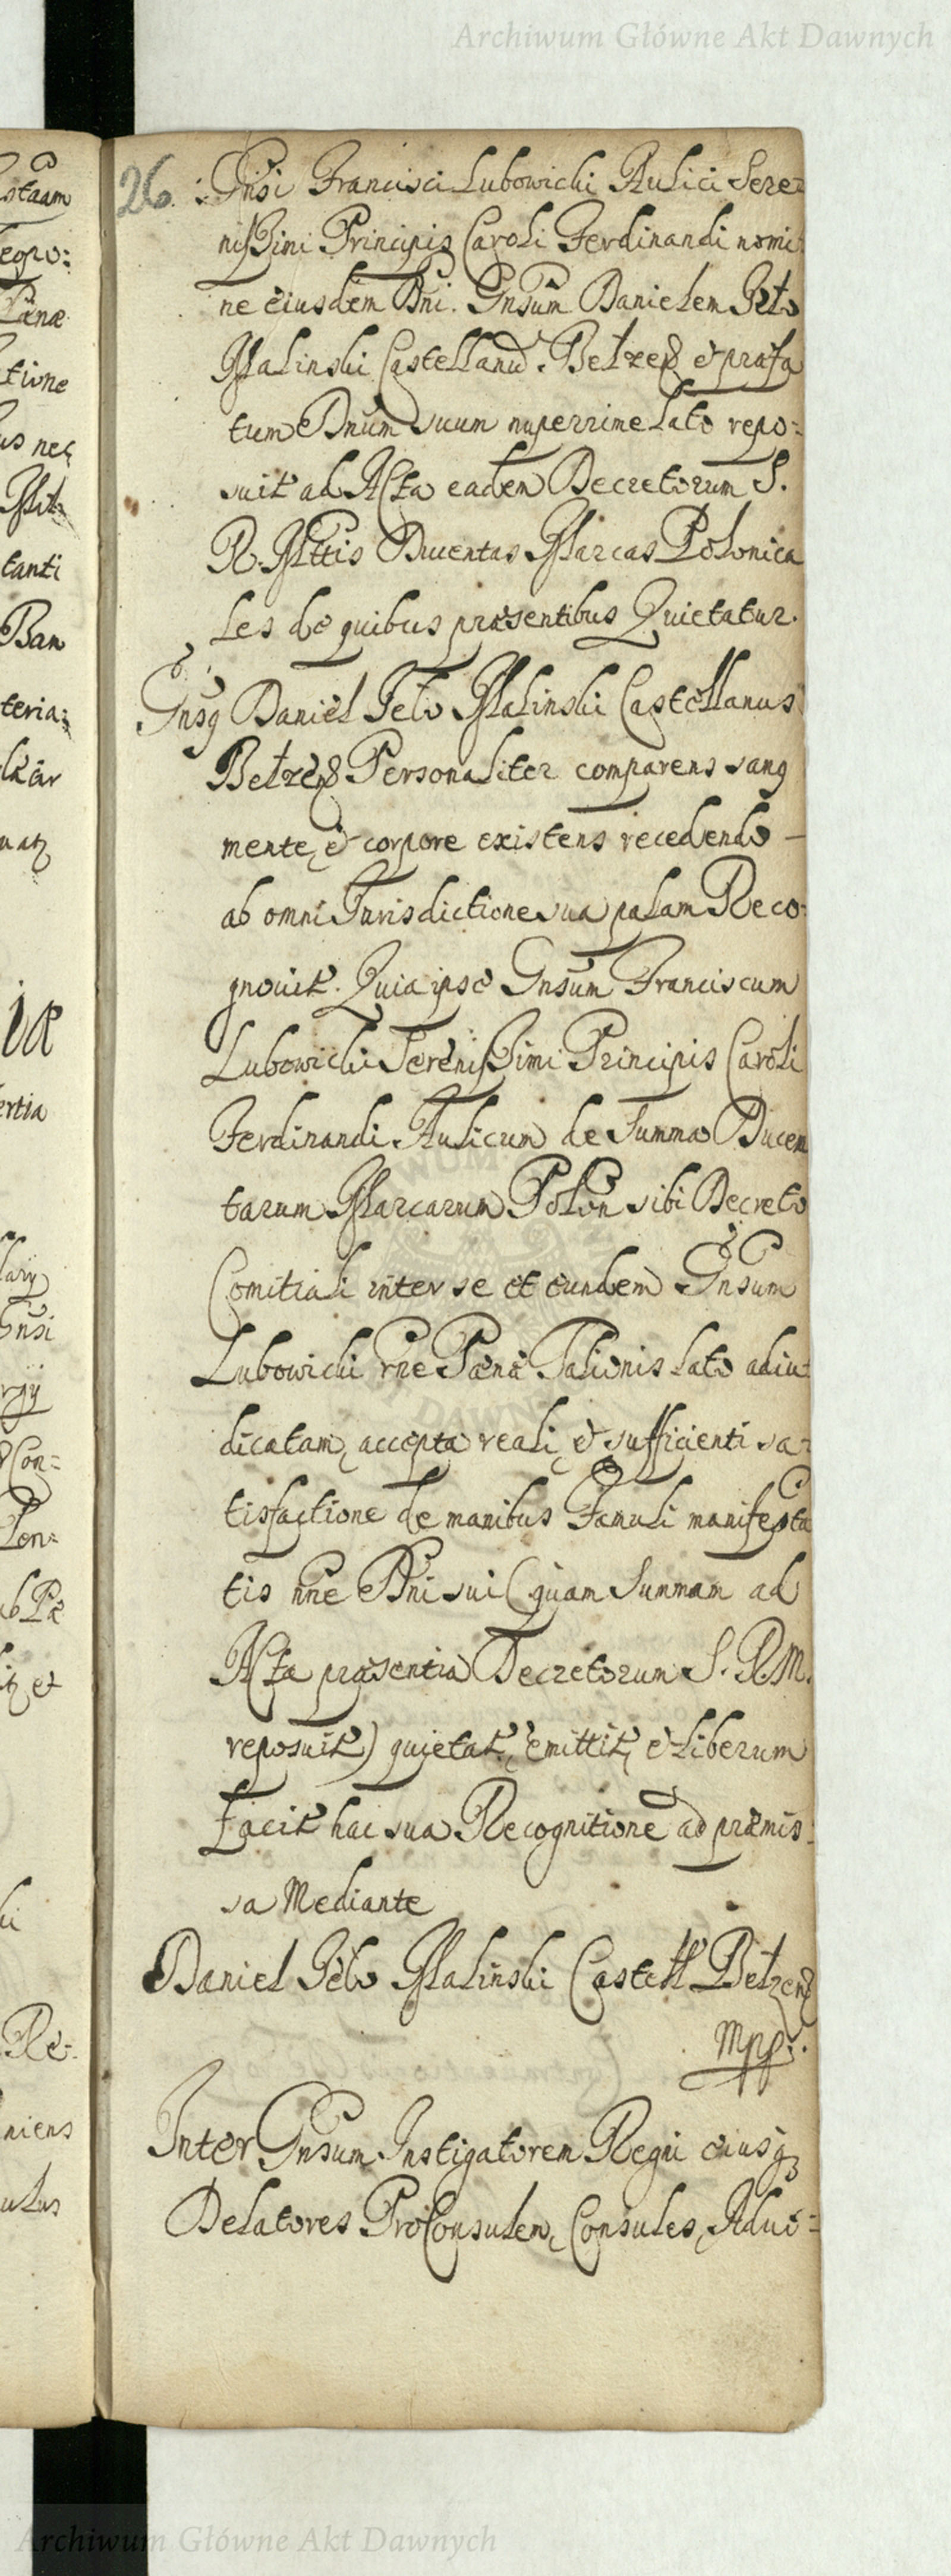 Archiwum Główne Akt Dawnych
26. Gnsi Francisci Lubowicki Aulici Sere=
nissimi Principis Caroli Ferdinandi nomi
ne eiusdem Dni. Gnsum Danielem Jelo
Malinski Castellanū Belzeñ et præfa
tum Dnum suum nuperrime lato repo=
suit ad Acta eadem Decretorum S.
R. Mttis Ducentas Marcas Polonica
les de quibus præsentibus Quietatur.
Gnsq Daniel Jelo Malinski Castellanus
Belzeñ Personaliter comparens sanq
mente, et corpore existens recedendo –
ab omni Jurisdictione sua palam Reco=
gnouit. Quia ipse Gnsum Franciscum
Lubowicki Serenissimi Principis Caroli
Ferdinandi Aulicum de Summa Ducen
tarum Marcarum Polon sibi Decreto
Comitiali inter se et eundem Gnsum
Lubowicki rne Pænæ Talionis lato adiu=
dicatam, accepta reali, et sufficienti sa=
tisfactione de manibus Famuli manifesta
tis nne Dni sui (quam Summam ad
Acta præsentia Decretorum S. R. M.
reposuit) quietat, emittit, et liberum
facit hac sua Recognitione ad præmis=
sa Mediante
Daniel Jelo Malinski Castell Belzeñ
Mpp.
Inter Gnsum Instigatorem Regni eiusq
Delatores ProConsulem, Consules, Aduo=
Archiwum Główne Akt Dawnych